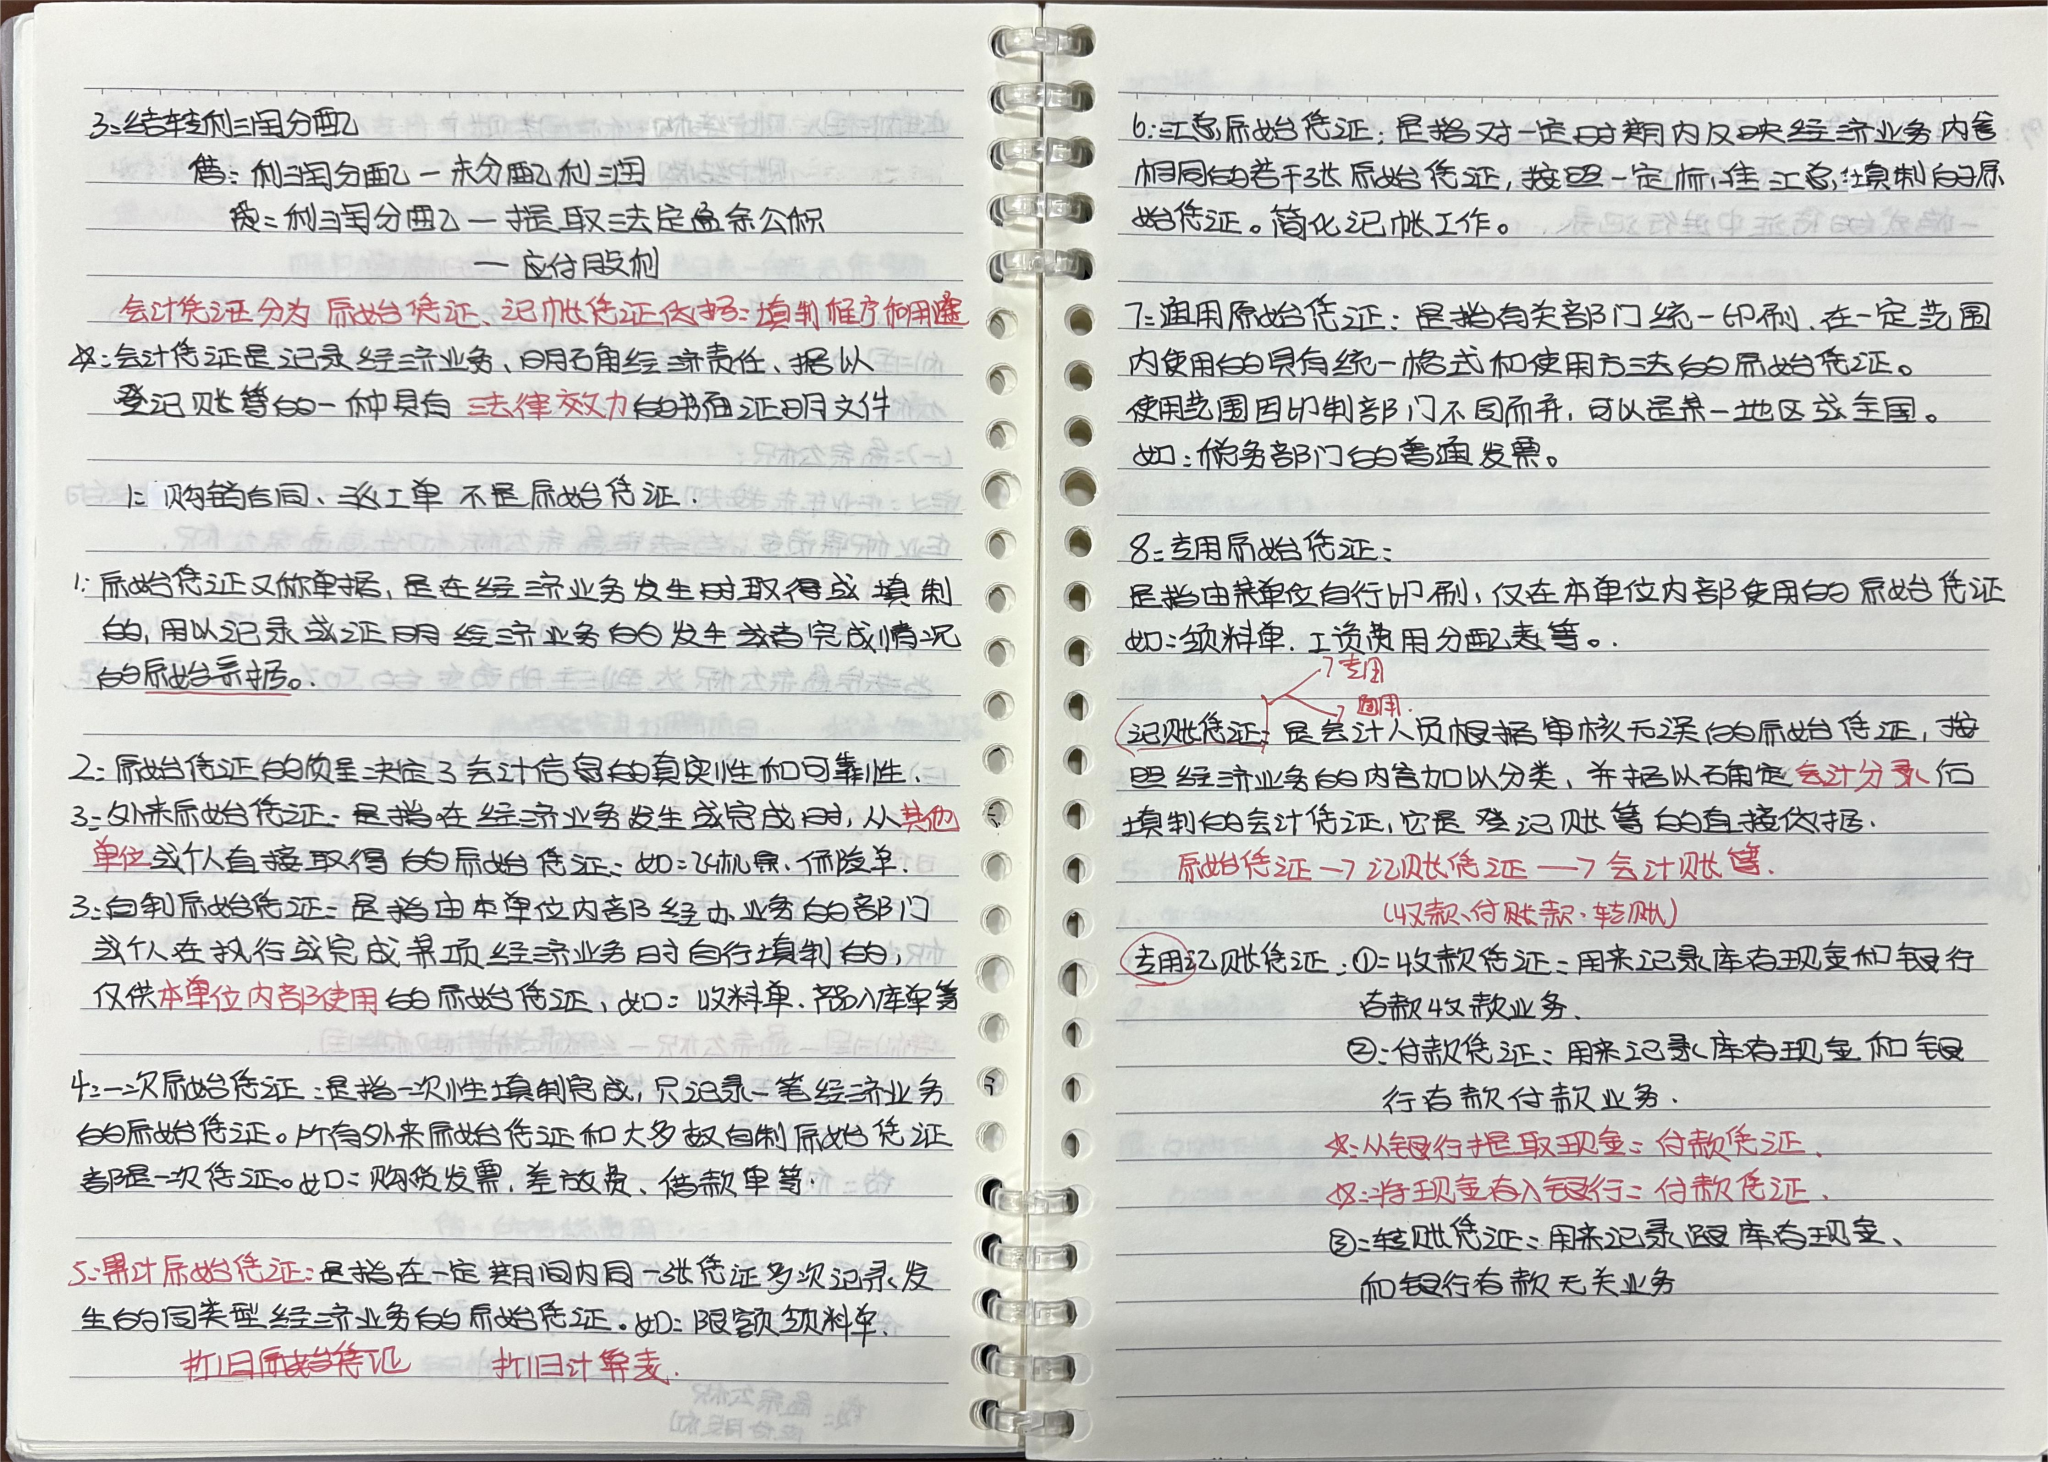 3:结转利润分配
借:利润分配一未分配利润
贷:利润分配一提取法定盈余公积
一应付股利
会计凭证分为原始凭证、记帐凭证依据:填制程序和用途
☆:会计凭证是记录经济业务、明确经济责任、据以
登记账簿的一种具有法律效力的书面证明文件
1: 购销合同、派工单不是原始凭证.
1:原始凭证又称单据,是在经济业务发生时取得或填制
的,用以记录或证明经济业务的发生或者完成情况
的原始票据。
2:原始凭证的质量决定了会计信息的真实性和可靠性.
3:外来原始凭证:是指在经济业务发生或完成时,从其他
单位或个人直接取得的原始凭证、如:飞机票.保险单.
3:自制原始凭证:是指由本单位内部经办业务的部门
或个人在执行或完成某项经济业务时自行填制的,
仅供本单位内部使用的原始凭证,如:收料单.入库单等
4:一次原始凭证:是指一次性填制完成,只记录一笔经济业务
的原始凭证。所有外来原始凭证和大多数自制原始凭证
都是一次凭证。如:购货发票.差旅费、借款单等.
5:累计原始凭证:是指在一定期间内同一张凭证多次记录发
生的同类型经济业务的原始凭证。如:限额领料单.
折旧原始凭证 折旧计算表.
6:汇总原始凭证:是指对一定时期内反映经济业务内容
相同的若干张原始凭证,按照一定标准汇总填制的原
始凭证。简化记帐工作。
7:通用原始凭证:是指有关部门统一印刷.在一定范围
内使用的具有统一格式和使用方法的原始凭证。
使用范围因印制部门不同而异,可以是某一地区或全国。
如:税务部门的普通发票。
8:专用原始凭证:
是指由某单位自行印刷,仅在本单位内部使用的原始凭证
如:领料单.工资费用分配表等。.
专用
通用.
记账凭证:是会计人员根据审核无误的原始凭证,按
照经济业务的内容加以分类,并据以确定会计分录后
填制的会计凭证,它是登记账簿的直接依据.
原始凭证→记账凭证→会计账簿.
(收款、付账款.转账)
专用记账凭证:①:收款凭证:用来记录库存现金和银行
存款收款业务.
②:付款凭证:用来记录库存现金和银
行存款付款业务.
☆:从银行提取现金:付款凭证.
☆:将现金存入银行:付款凭证.
③:转账凭证:用来记录跟库存现金、
和银行存款无关业务